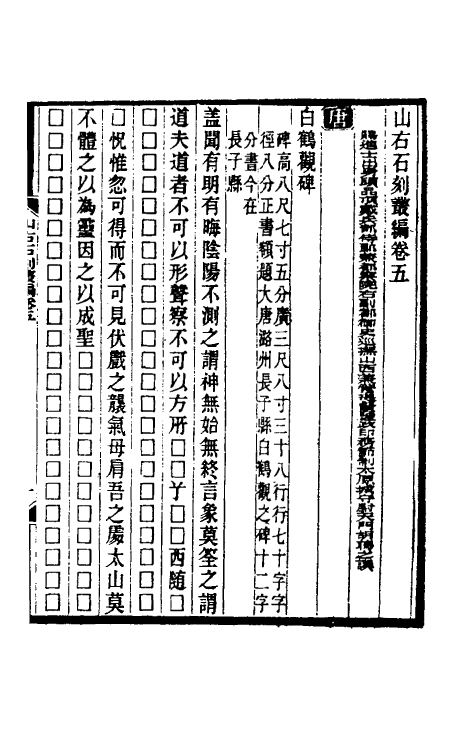 山右石刻叢編卷五
唐
白鶴觀碑
碑高八尺七寸五分廣三尺八寸三十八行行七十字字
徑八分正書額題大唐潞州長子縣白鶴觀之碑十二字
分書今在
長子縣
蓋聞有明有晦陰陽不測之謂神無始無終言象莫筌之謂
道夫道者不可以形聲察不可以方所□□丫□□西随□
□□□□□□□□□□□□□□□□□□□□□□□
□怳惟忽可得而不可見伏戲之襲氣母肩吾之處太山莫
不體之以為靈因之以成聖□□□□□□□□□□□□
□□□□□□□□□□□□□□□□□□□□□□□
山右石刻叢編卷五
一